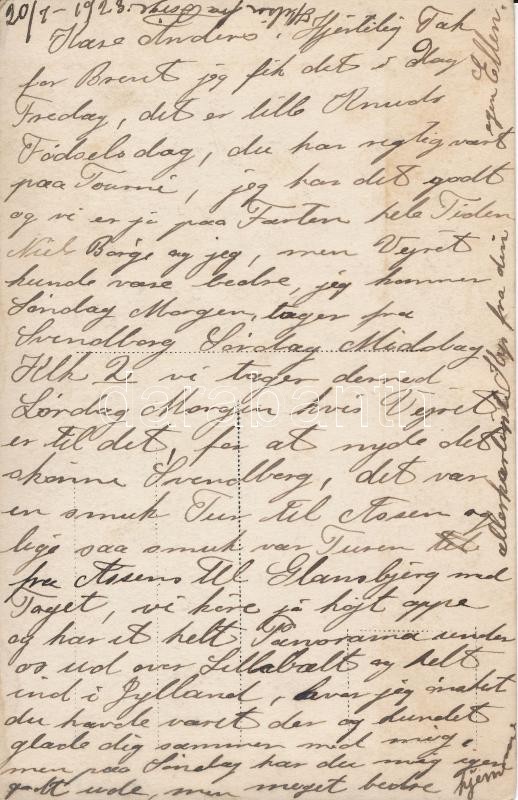 20/7-1923.
Kære Anders! Hjertelig Tak
for Brevet jeg fik det i Dag
Fredag, det er lille Knuds
Fødselsdag, du har rigtig vært
paa Tourne, jeg har det godt
og vi er jo paa Farten hele Tiden
Niels Børge og jeg, men Vejret
kunde være bedre, jeg kommer
Søndag Morgen, tager fra
Svendborg Lørdag Middag
Klk 2, vi tager derned
Lørdag Morgen hvis Vejret
er til det, for at nyde det
skønne Svendborg, det var
en smuk Tur til Assen og
lige saa smuk var Turen
fra Assens til Glansbjerg med
Toget, vi køre jo højt oppe
og har et helt Panorama under
os ud over Lillebælt og helt
ind i Jylland, hvor jeg ønsket
du havde været der og kundet
glæde dig sammen med mig,
men paa Søndag har du mig igen
godt ude, men meget bedre
hjemme.
allerkærligst Kys fra din
egen Ellen.
darabanth